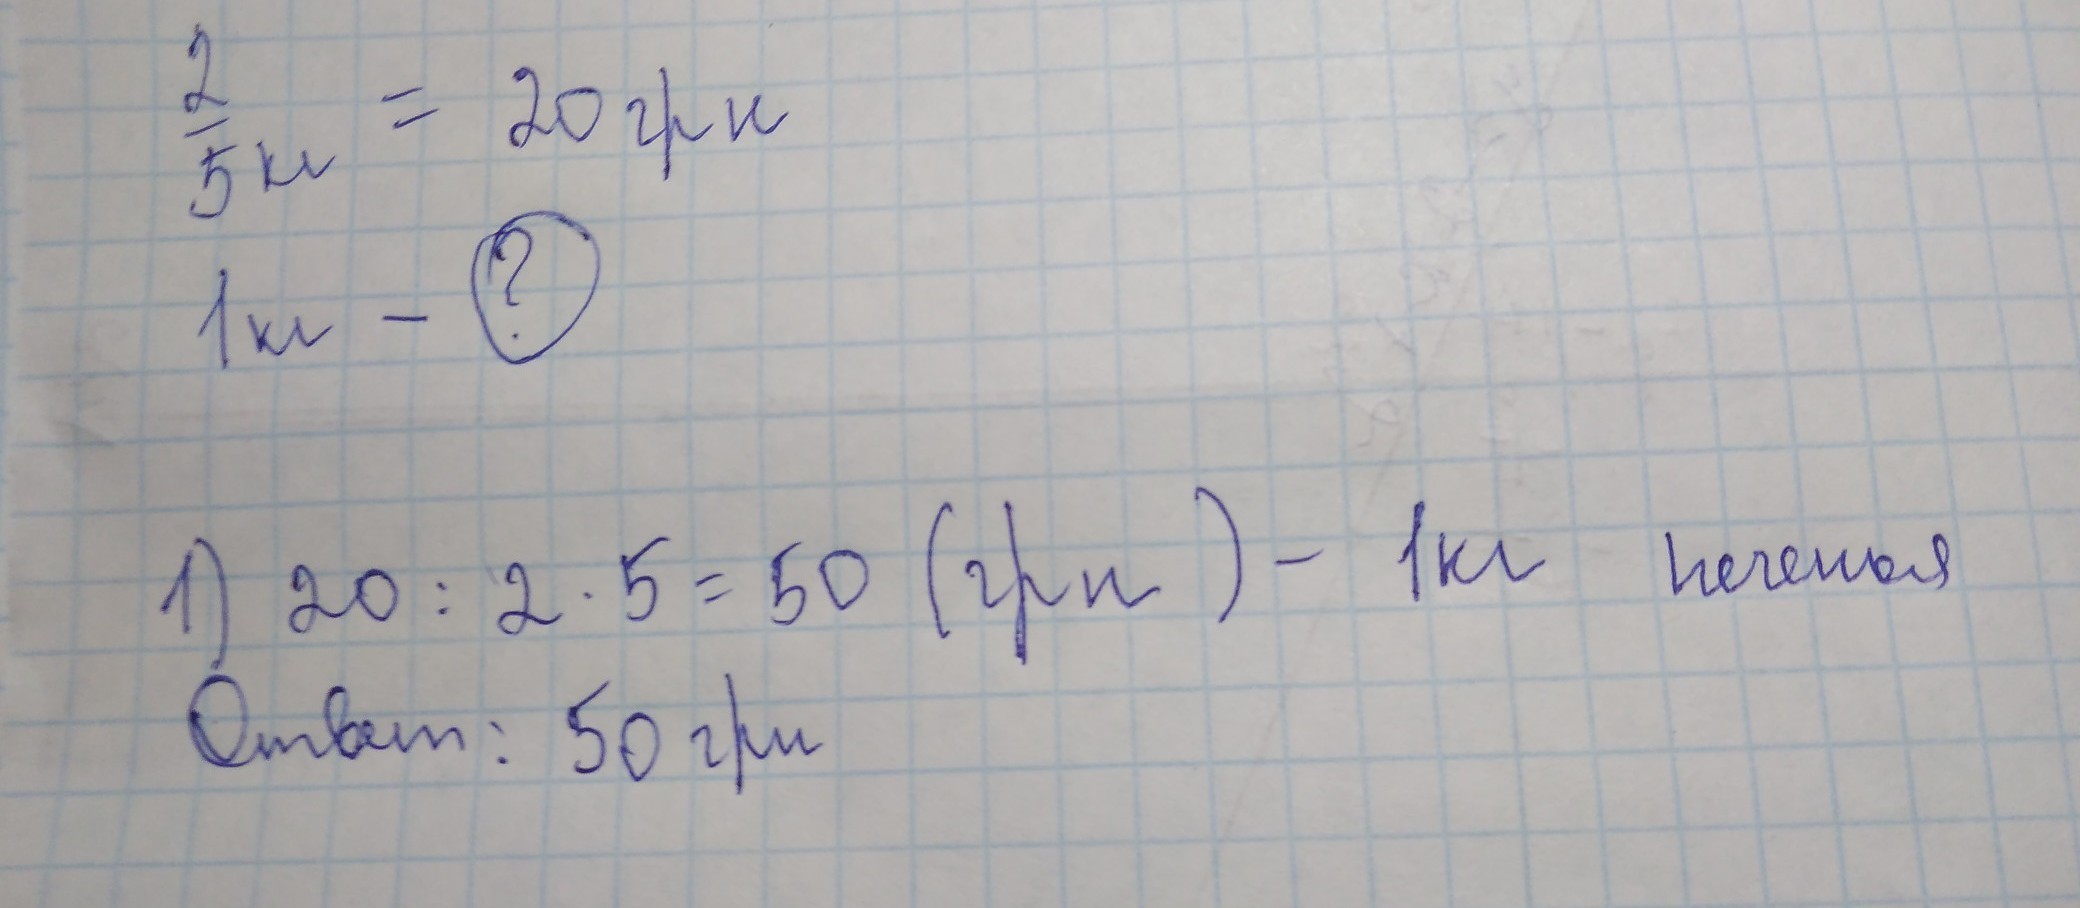 2/5 кг = 20 грн
1кг - ?
1) 20 : 2 · 5 = 50 (грн) - 1кг печенья
Ответ: 50 грн